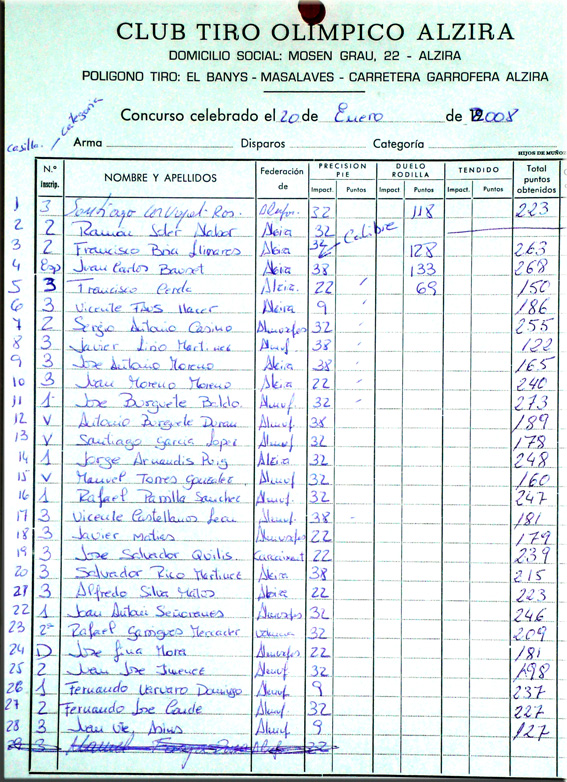 CLUB TIRO OLIMPICO ALZIRA
DOMICILIO SOCIAL: MOSEN GRAU, 22 - ALZIRA
POLIGONO TIRO: EL BANYS - MASALAVES - CARRETERA GARROFERA ALZIRA
Concurso celebrado el 20 de Enero de 2008
casilla categoria
Arma Disparos Categoría
HIJOS DE MUÑOZ
N.º Inscrip. NOMBRE Y APELLIDOS Federación de PRECISION PIE DUELO RODILLA TENDIDO Total puntos obtenidos
Impact. Puntos Impact. Puntos Impact. Puntos
1 3 Santiago 32 118 223
2 2 Ramon Soler Nabor Alcira 32 Calibre
3 2 Francisco Llinares Alcira 32 128 263
4 Esp Juan Carlos Bauset Alcira 38 133 268
5 3 Francisco Cerda Alzira 22 69 150
6 3 Vicente Alcira 9 186
7 2 Sergio Antonio Casino Almusafes 32 255
8 3 Javier Lirio Martinez Almuf. 38 122
9 3 Jose Antonio Moreno Alcira 38 165
10 3 Juan Moreno Moreno Alcira 22 240
11 1 Jose Burguete Baldo Almuf. 32 273
12 V Antonio Burguete Duran Almuf. 38 189
13 V Santiago Garcia Lopez Almuf. 32 178
14 1 Jorge Armandis Puig Alcira 32 248
15 V Manuel Torres Gonzalez Almuf. 32 160
16 1 Rafael Parrilla Sanchez Almuf. 32 247
17 3 Vicente Castellanos Leon Almuf. 38 181
18 3 Javier Maties Almusafes 22 179
19 3 Jose Salvador Quilis 22 239
20 3 Salvador Rico Martinez Alcira 38 215
21 3 Alfredo Silva Matos Alcira 22 223
22 1 Joan Antoni Señoranes Almusafes 32 246
23 2ª Rafael Garrigos 32 209
24 D Jose Mora Almusafes 22 181
25 2 Juan Jose Jimenez Almuf. 32 198
26 1 Fernando Varvaro Domingo Almuf. 9 237
27 2 Fernando Jose Conde Almuf. 32 227
28 3 Juan Almuf 9 127
3 22